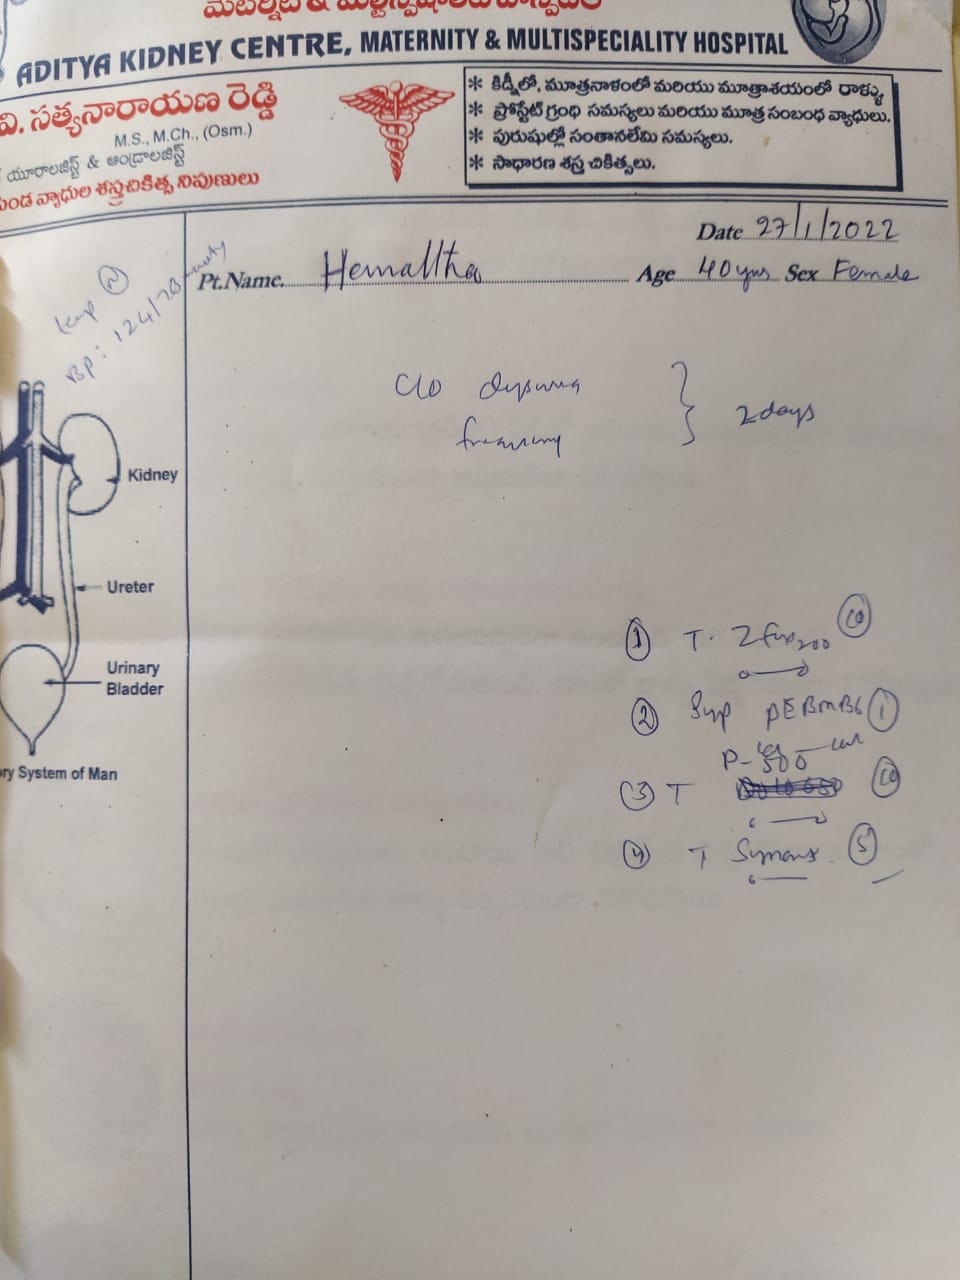 మెటర్నిటి & మల్టీస్పెషాలిటి హాస్పిటల్
ADITYA KIDNEY CENTRE, MATERNITY & MULTISPECIALITY HOSPITAL
వి. సత్యనారాయణ రెడ్డి
M.S., M.Ch., (Osm.)
యూరాలజిస్ట్ & ఆండ్రాలజిస్ట్
వ్యాధుల శస్త్రచికిత్స నిపుణులు
* కిడ్నీలో, మూత్రనాళంలో మరియు మూత్రాశయంలో రాళ్ళు.
* ప్రోస్టేట్ గ్రంధి సమస్యలు మరియు మూత్ర సంబంధ వ్యాధులు.
* పురుషుల్లో సంతానలేమి సమస్యలు.
* సాధారణ శస్త్ర చికిత్సలు.
Date 27/1/2022
Pt.Name. Hemaltha Age 40 yrs Sex Female
BP: 124/70
C/o dysuria
frequency
2 days
Kidney
Ureter
Urinary
Bladder
System of Man
1 T. 200 10
2 Syp 1
P-500
3 T 10
4 T 5